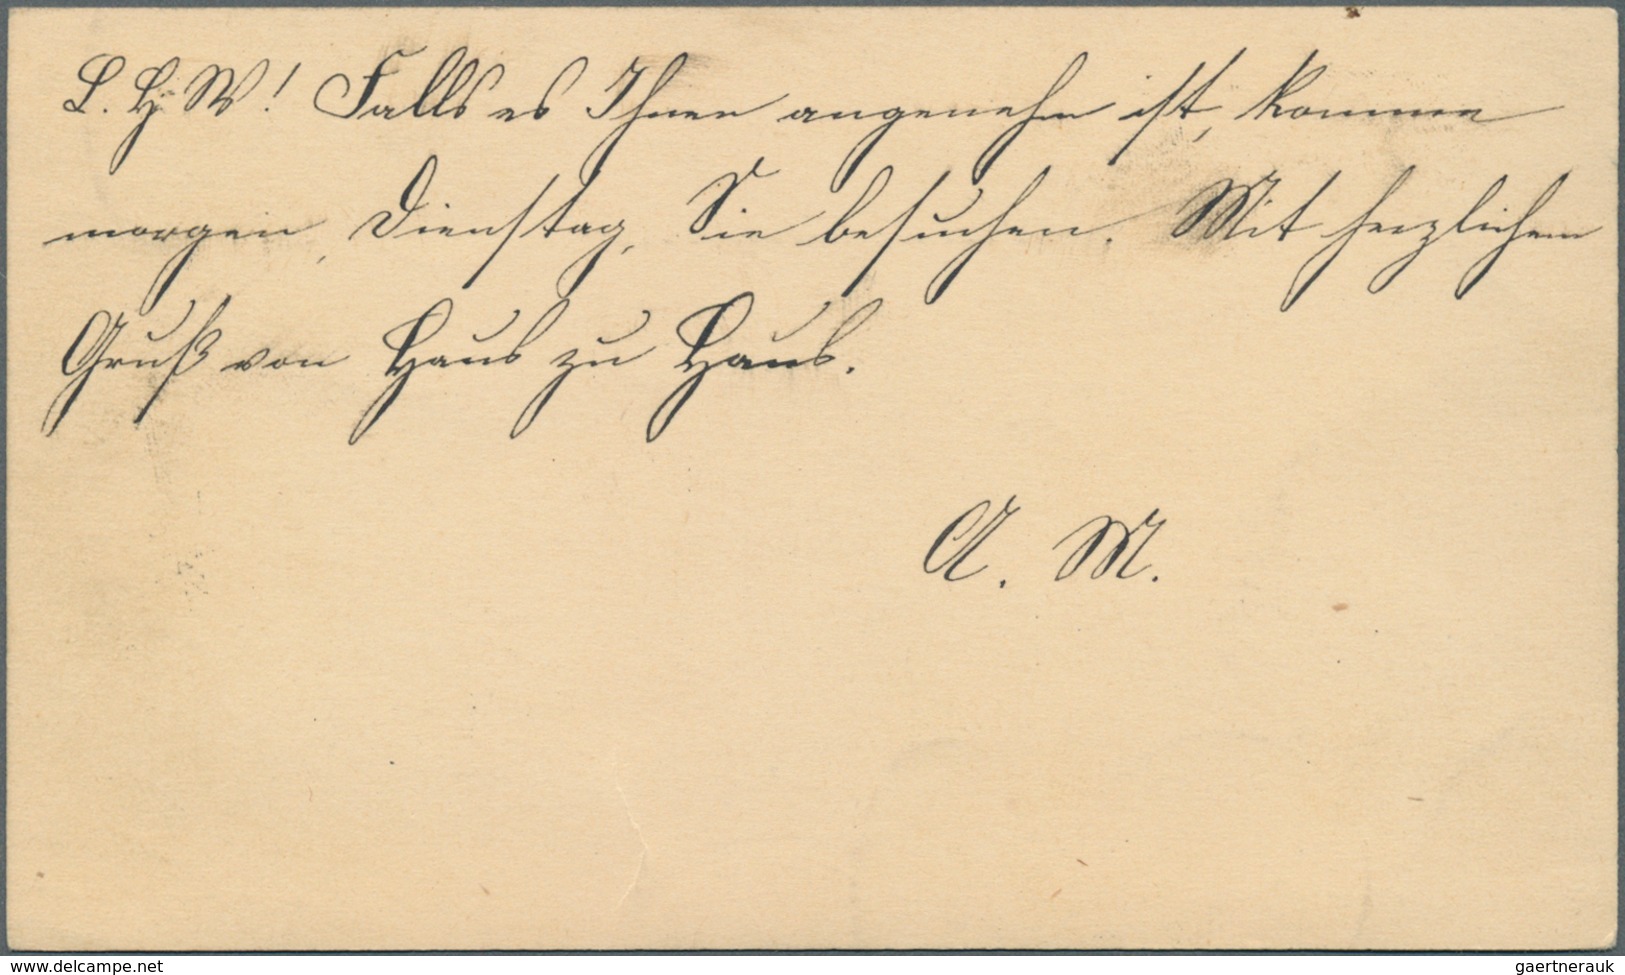 L. H. W! Falls es Ihnen angenehm ist, komme
morgen, Dienstag, Sie besuchen. Mit herzlichem
Gruß von Haus zu Haus.
A. M.
www.delcampe.net
gaertnerauk